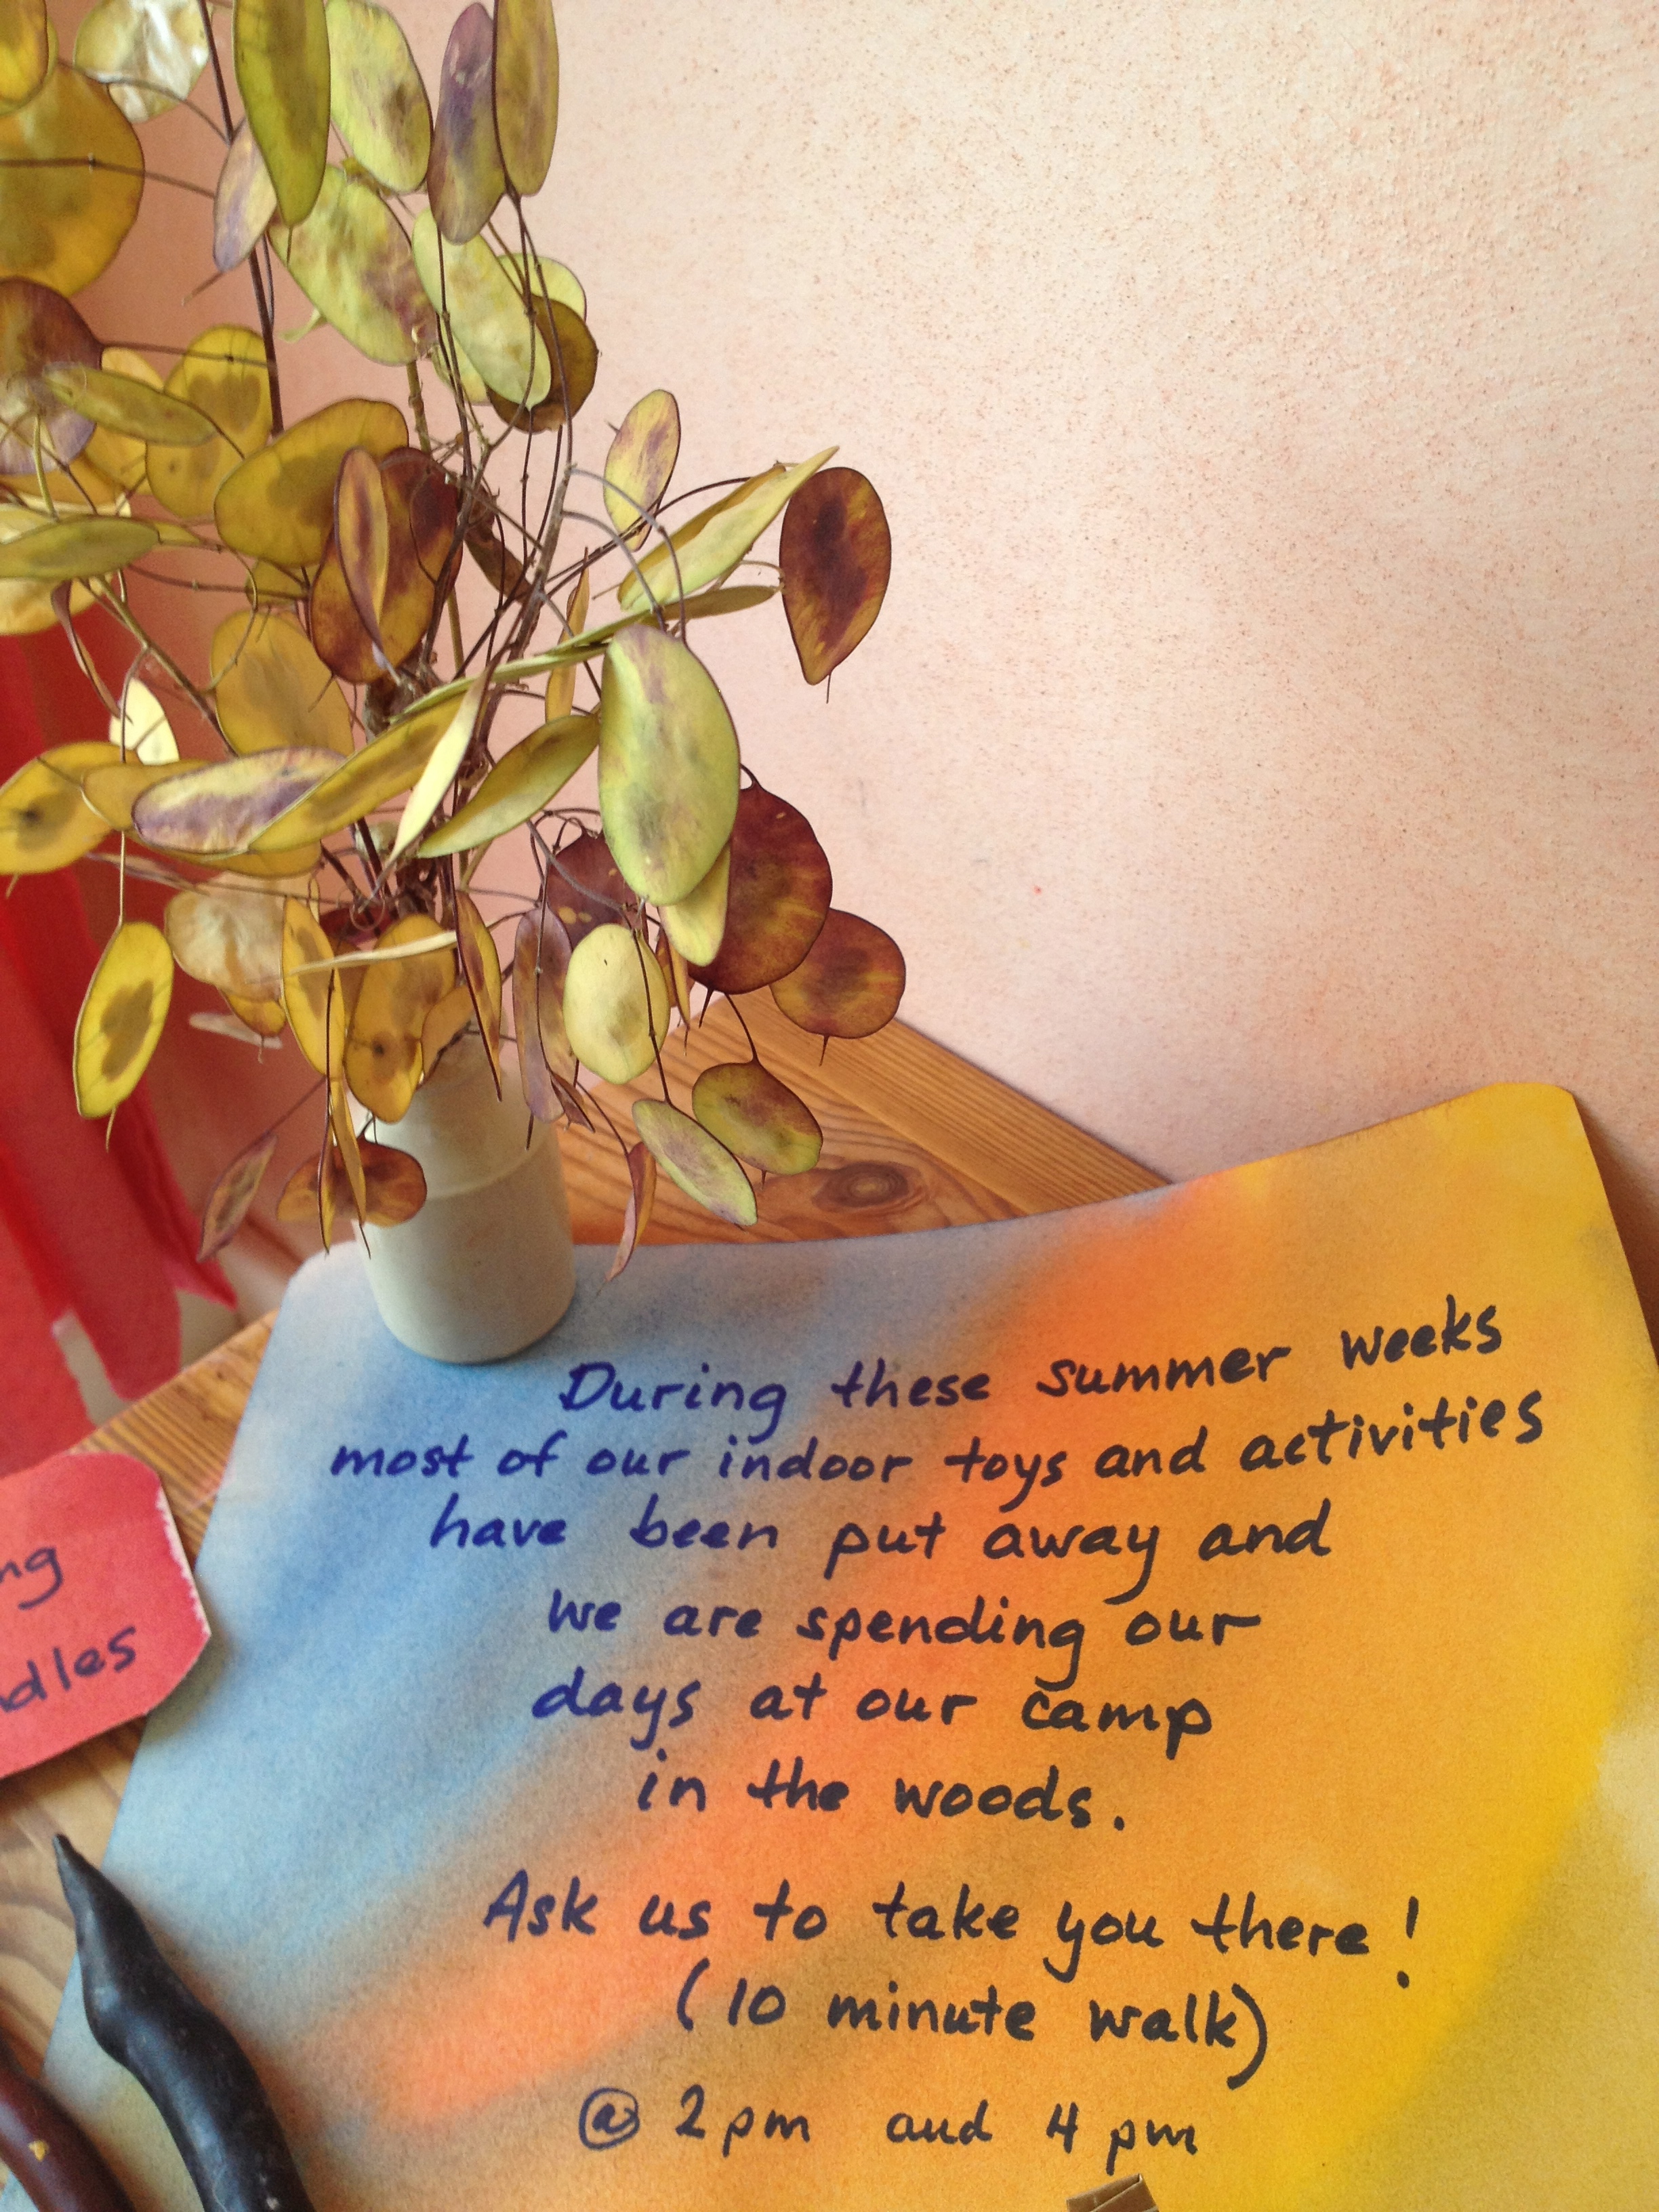 During these summer weeks
most of our indoor toys and activities
have been put away and
we are spending our
days at our camp
in the woods.
Ask us to take you there!
(10 minute walk)
@ 2pm and 4 pm